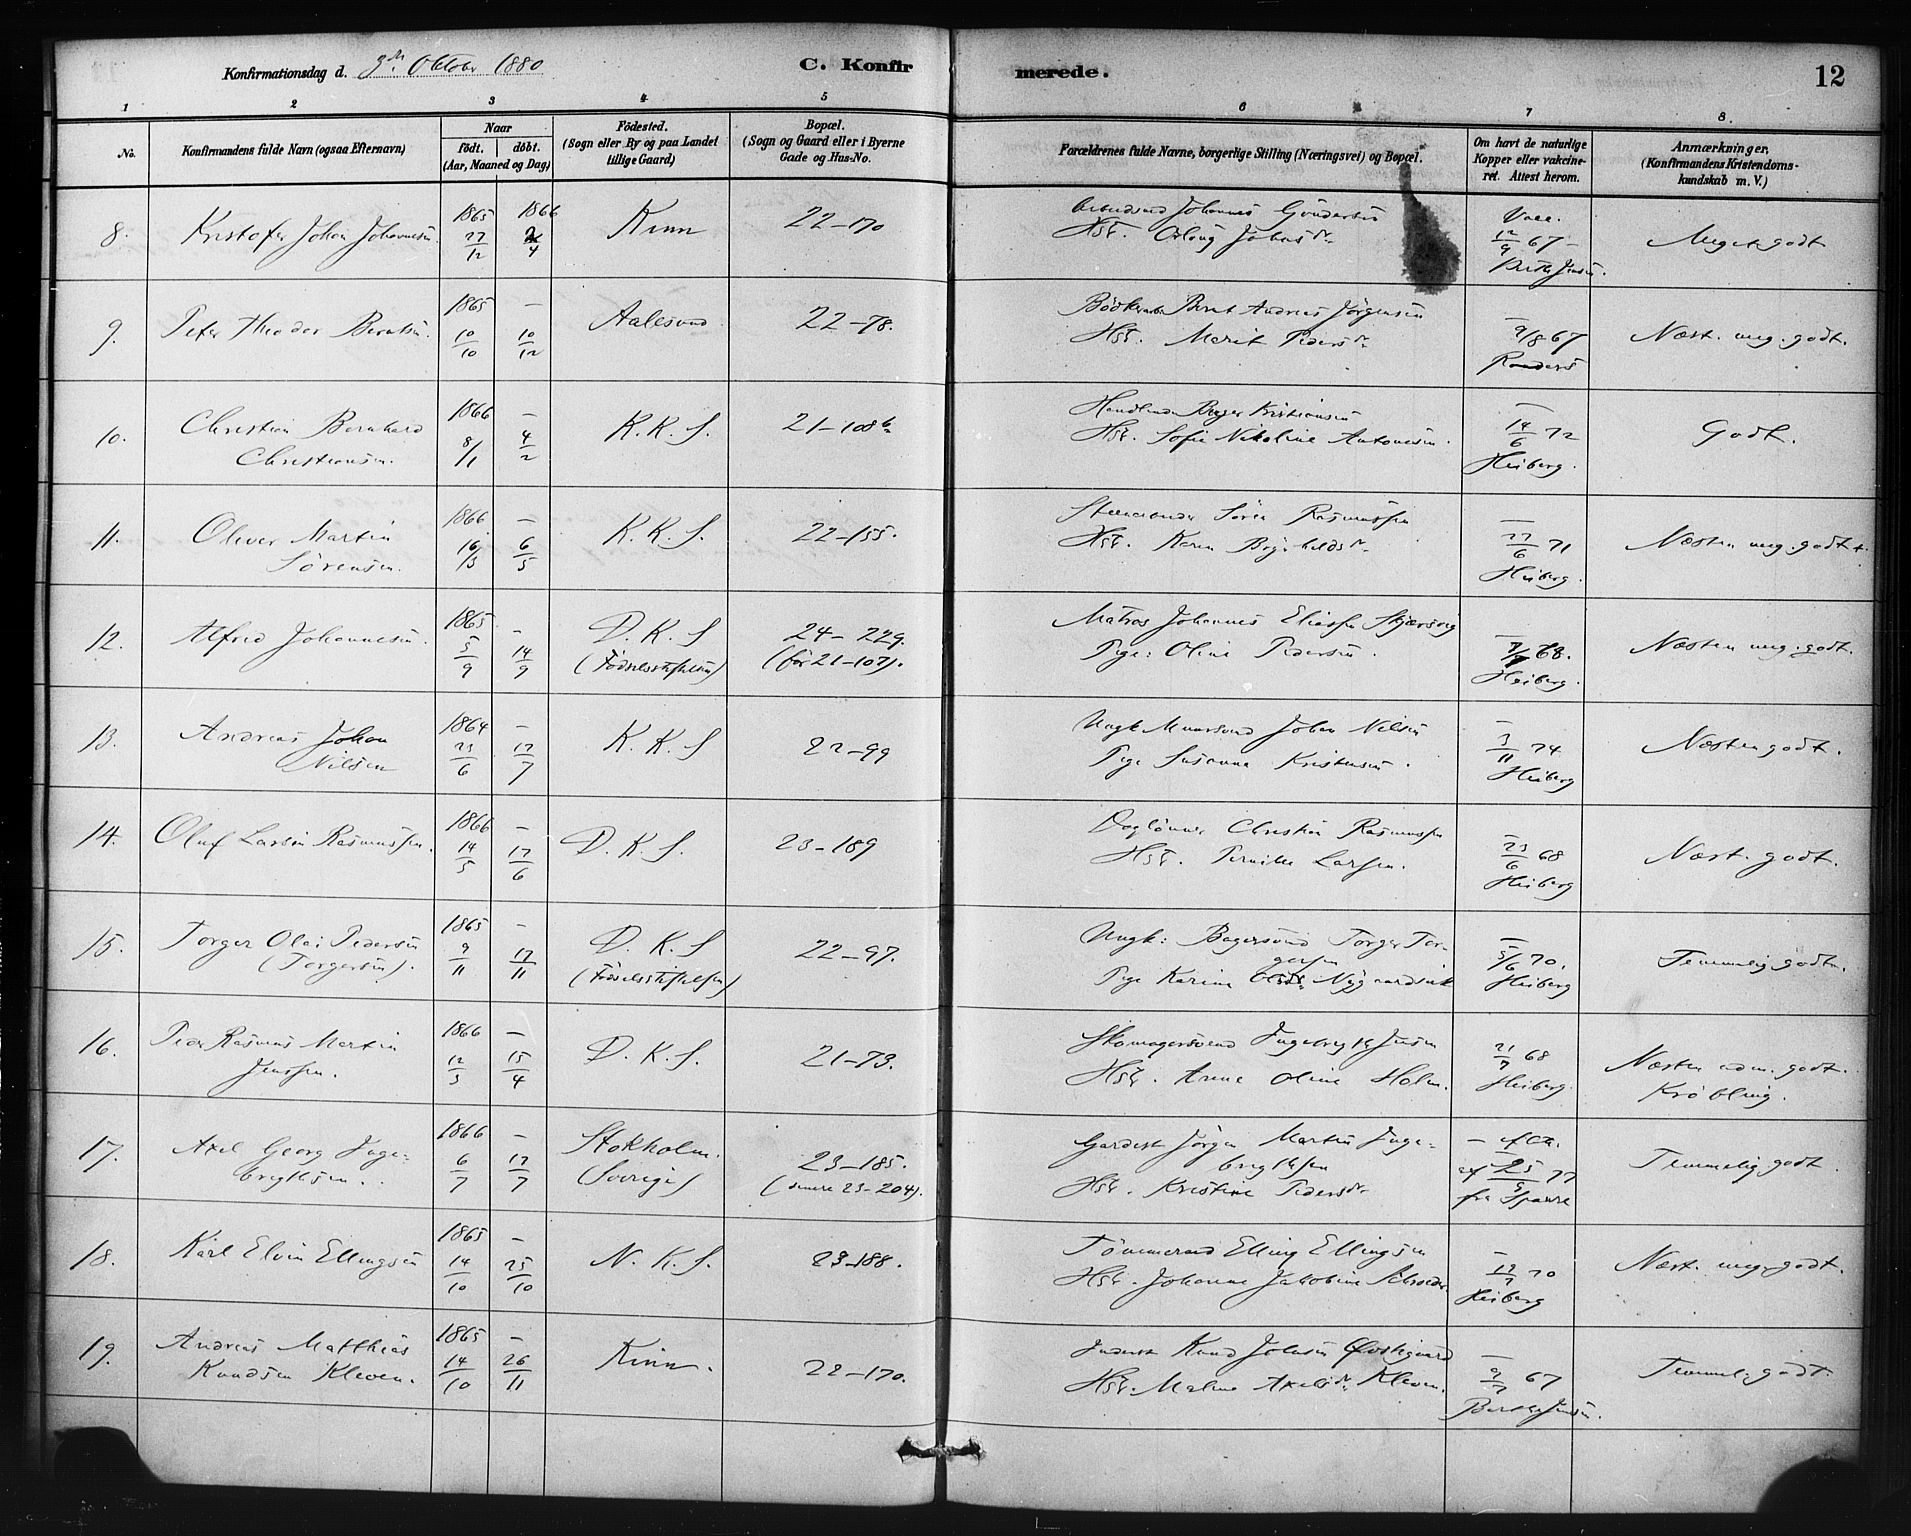 Konfirmationsdag d. 3die Oktober 1880
C. Konfirmerede.
12
1 2 3 4 5 6 7 8.
No.
Konfirmandens fulde Navn (ogsaa Efternavn)
Naar
födt. döbt.
(Aar, Maaned og Dag)
Födested.
(Sogn eller By og paa Landet
tillige Gaard)
Bopæl.
(Sogn og Gaard eller i Byerne
Gade og Hus-No.
Forældrenes fulde Navne, borgerlige Stilling (Næringsvei) og Bopæl.
Om havt de naturlige
Kopper eller vakcine-
ret. Attest herom.
Anmærkninger,
(Konfirmandens Kristendoms-
kundskab m. V.)
8. Kristofer Johan Johannesen 1865 27/12 1866 2/4 Kinn 22-170
Arbeidsmd Johannes Gundersen
Hst. Johnsdr.
Vacc. 12/9 67
Meget godt
9. Peter Theodor Berntsen. 1865 10/10 – 10/12 Aalesund 22-78.
Bödker Bernt Andreas Jörgensen
Hst. Marit Pedersdr.
– 9/8 67
Næst. meg. godt.
10. Christian Bernhard
Christiansen. 1866 8/1 – 4/2 K.K.S. 21-108b
Handlende Birger Kristiansen
Hst. Sofie Nikoline Antonesen.
– 14/6 72
Heiberg.
Godt.
11. Oliver Martin
Sörensen. 1866 16/3 – 6/5 K.K.S. 22-155.
Sören Rasmussen
Hst. Karen Brynhildsdr.
– 27/6 71
Heiberg.
Næsten meg. godt.
12. Alfred Johannesen. 1865 5/9 – 14/9 D.K.S
(Födselsstiftelsen) 24-229.
(för 21-107).
Matros Johannes Eliassen Skjærvig
Pige: Oline Pedersen.
68.
Heiberg.
Næsten meg. godt.
13. Andreas Johan
Nilsen 1864 23/6 – 17/7 K.K.S 22-99
Ungk. Muursvend Johan Nilsen
Pige Susanne Kristensen.
– 3/11 74
Heiberg
Næsten godt.
14. Oluf Larsen Rasmussen. 1866 14/5 – 17/6 D.K.S. 23-189
Daglönner Christian Rasmussen
Hst. Pernille Larsen.
23/6 68
Heiberg
Næst. godt.
15. Torger Olai Pedersen
(Torgersen). 1865 9/11 – 17/11 D.K.S
(Födselsstiftelsen) 22-97.
Ungk: Bagersvend Torger Tor-
gersen
Pige Karine Olsdr. Nygaardsvik
– 5/6 70.
Heiberg
Temmelig godt.
16. Peder Rasmus Martin
Jenssen. 1866 12/3 – 15/4 D.K.S. 21-73.
Skomagersvend Ingebrigt Jensen
Hst. Anne Oline Holm.
21/7 68
Heiberg.
Næsten adm. godt.
Kröbling.
17. Axel Georg Inge-
brigtsen. 1866 6/7 – 17/7 Stokholm.
(Sverige) 23-185.
(senere 23-204).
Gardist Jörgen Martin Inge-
brigtsen
Hst. Kristine Pedersdr.
– af 25/5 77
fra Sparre
Temmelig godt.
18. Karl Elvin Ellingsen 1865 14/10 – 25/10 N.K.S. 23-188.
Tömmermd Elling Ellingsen
Hst. Johanne Jakobine Schroeder.
– 19/7 70
Heiberg
Næst. meg. godt.
19. Andreas Matthias
Knudsen Kleven. 1865 14/10 – 26/11 Kinn. 22-170.
Inderst Knud Johnsen
Hst. Maline Axelsdr. Kleven.
– 9/7 67
Temmel. godt.